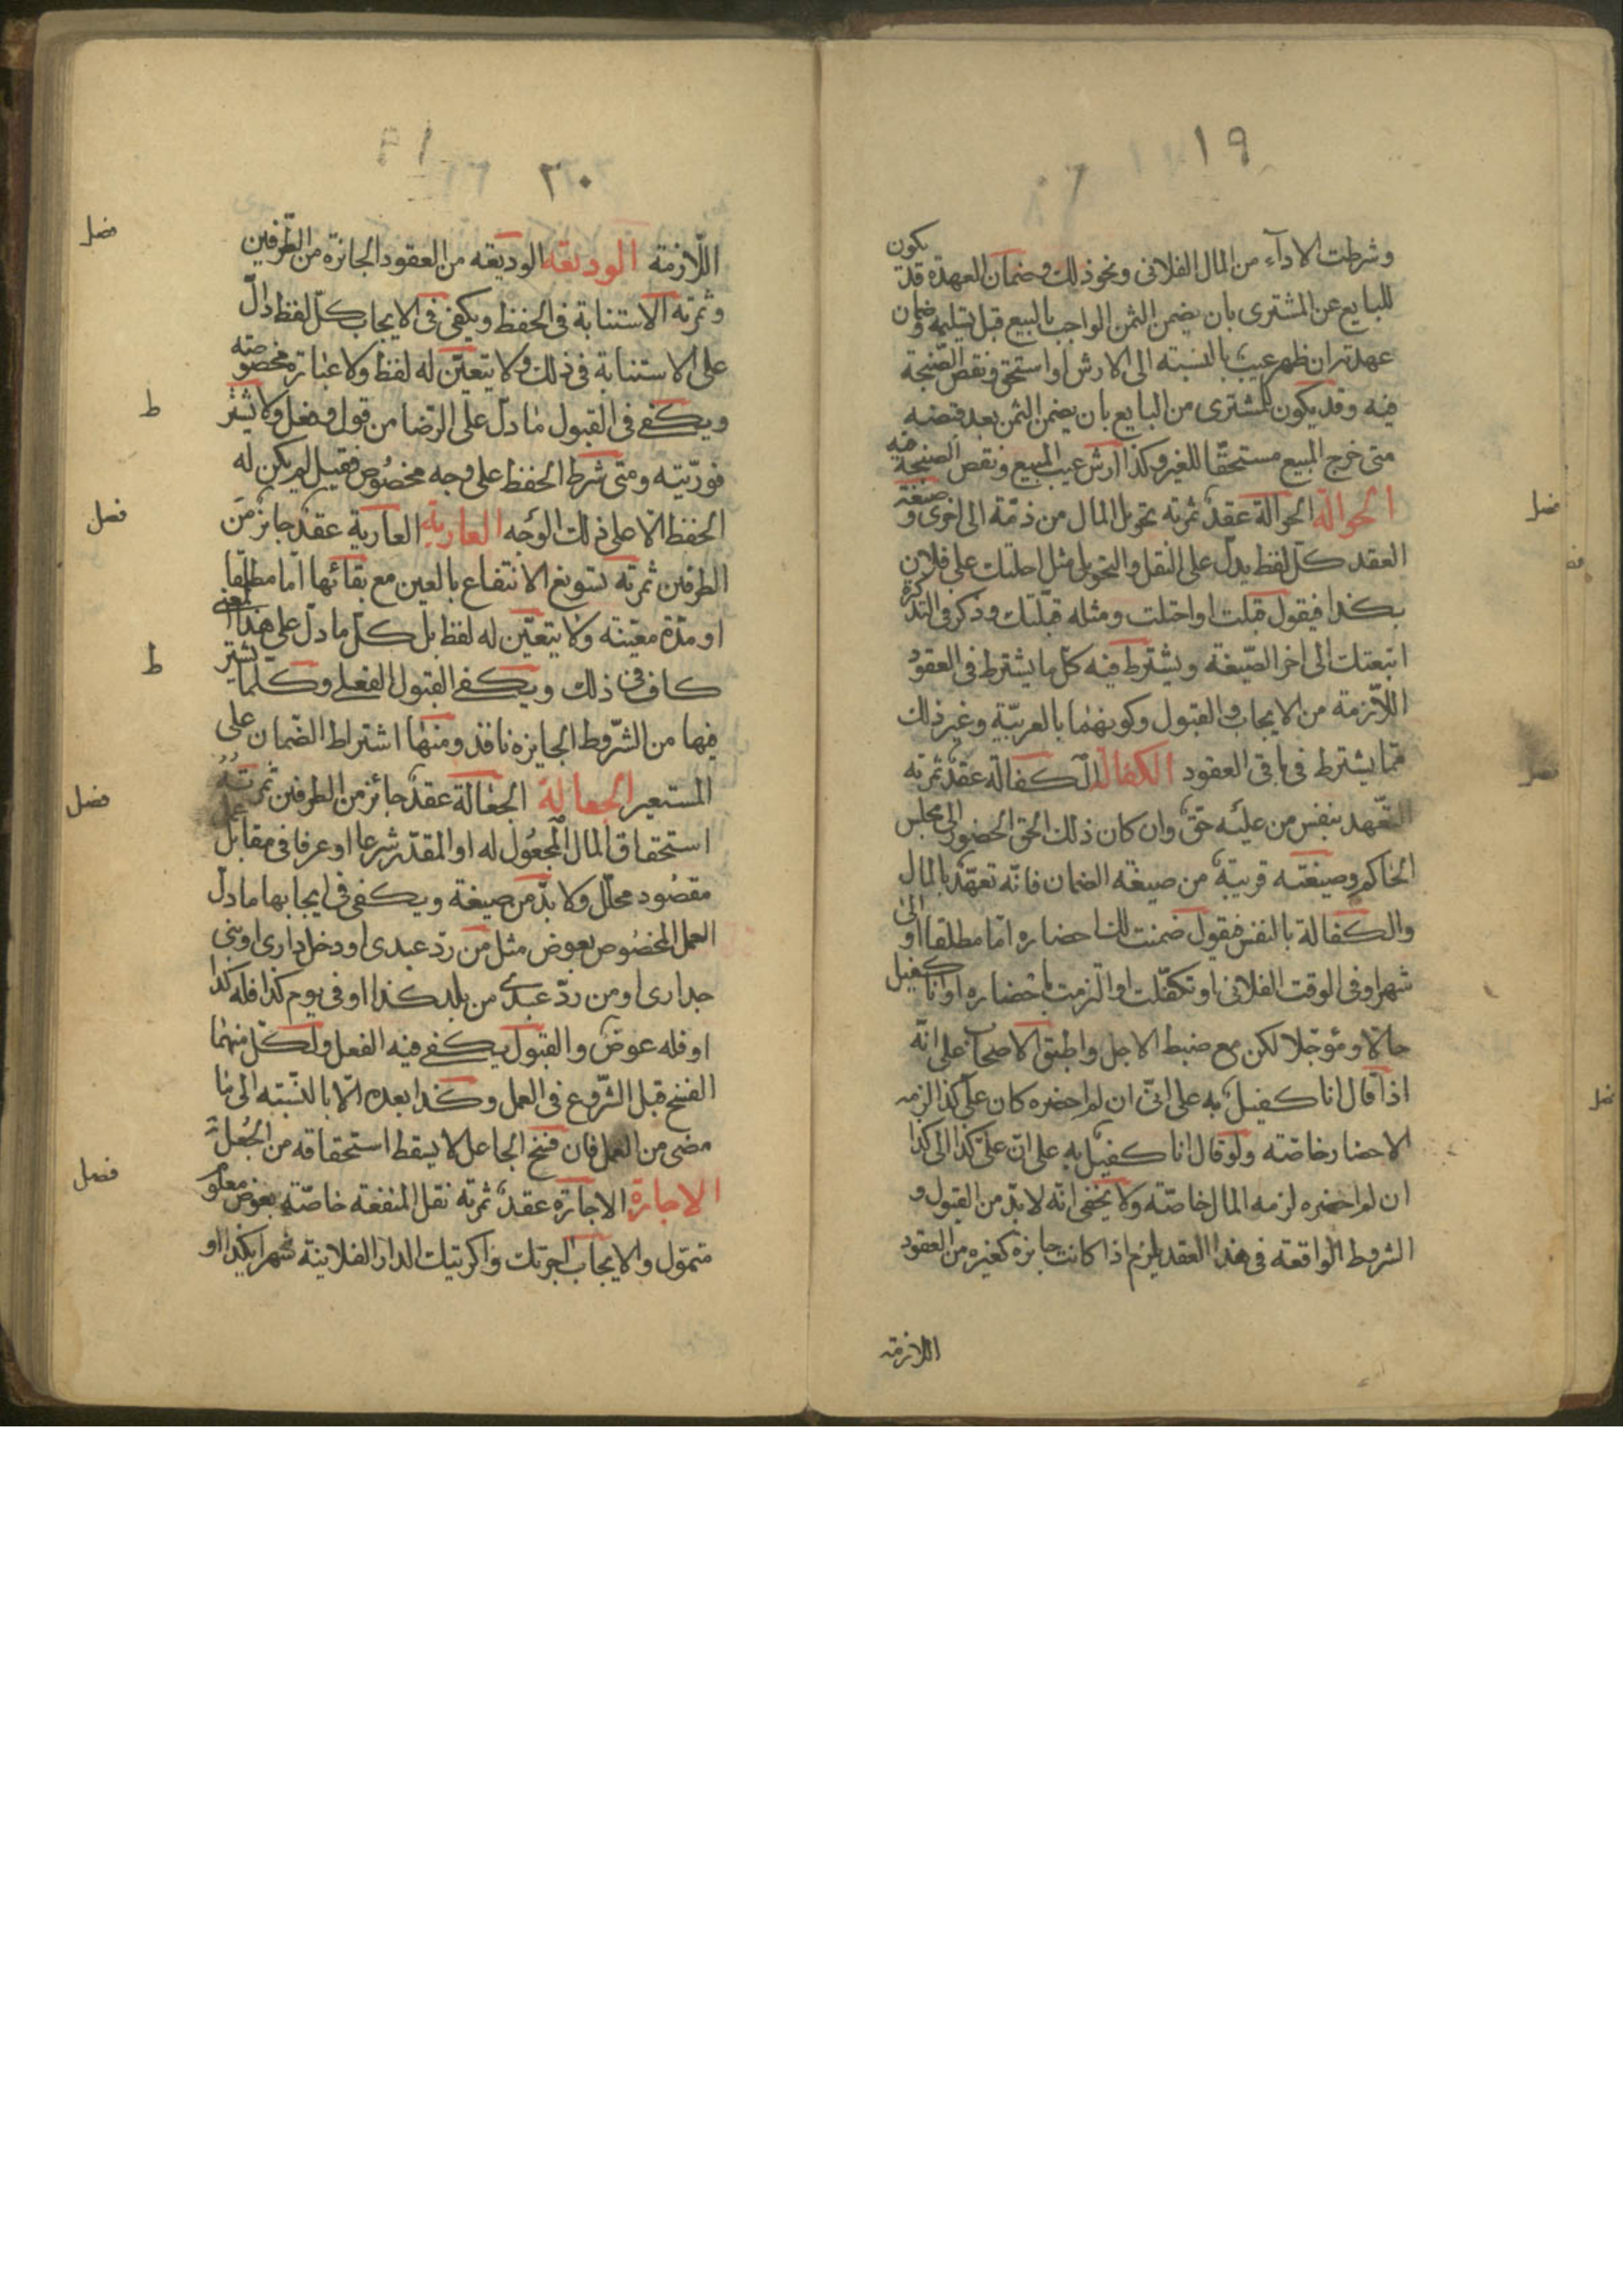 ١٩
وشرطت الاداء من المال الفلانى ونحو ذلك وضمان العهدة قد يكون
للبايع عن المشترى بان يضمن الثمن الواجب بالبيع قبل تسليمه وضمان
عهدته ان ظهر عيب بالنسبة الى الارش او استحق ونقص الصنجة
فيه وقد يكون للمشترى من البايع بان يضمن الثمن بعد قبضه
متى خرج المبيع مستحقا للغير وكذا ارش عيب المبيع ونقص الصنجة فيه
الحوالة الحوالة عقد ثمرته تحويل المال من ذمة الى اخرى وصيغة
العقد كل لفظ يدل على النقل والتحويل مثل احلتك على فلان
بكذا فيقول قبلت او احتلت ومثله قبلتك وذكر فى التذكرة
اتبعتك الى اخر الصيغة ويشترط فيه كل ما يشترط فى العقود
اللازمة من الايجاب والقبول وكونهما بالعربية وغير ذلك
مما يشترط فى باقى العقود الكفالة الكفالة عقد ثمرته
التعهد بنفس من عليه حق وان كان ذلك الحق الحضور الى مجلس
الحاكم وصيغته قريبة من صيغة الضمان فانه تعهد بالمال
والكفالة بالنفس فيقول ضمنت لك احضاره اما مطلقا او الى
شهر او فى الوقت الفلانى او تكفلت او التزمت باحضاره او انا كفيل
حالا او مؤجلا لكن مع ضبط الاجل واطبق الاصحاب على انه
اذا قال انا كفيل به على انى ان لم احضره كان على كذا لزمه
الاحضار خاصة ولو قال انا كفيل به على ان على كذا الى كذا
ان لم احضره لزمه المال خاصة ولا يخفى انه لابد من القبول و
الشروط الواقعة فى هذا العقد يلزم اذا كانت جايزة كغيره من العقود
اللازمة
فصل
فصل
٢٠
اللازمة الوديعة الوديعة من العقود الجائزة من الطرفين
وثمرته الاستنابة فى الحفظ ويكفى فى الايجاب كل لفظ دال
على الاستنابة فى ذلك ولا يتعين له لفظ ولا عبارة مخصوصة
ويكفى فى القبول ما دل على الرضا من قول وفعل ولا يشتر ط
فوريته ومتى شرط الحفظ على وجه مخصوص فقبل لم يكن له
الحفظ الا على ذلك الوجه العارية العارية عقد جايز من
الطرفين ثمرته تسويغ الانتفاع بالعين مع بقائها اما مطلقا
او مدة معينة ولا يتعين له لفظ بل كل ما دل على هذا المعنى
كاف فى ذلك ويكفى القبول الفعلى وكلما يشتر ط
فيها من الشروط الجايزة نافذ ومنها اشتراط الضمان على
المستعير الجعالة الجعالة عقد جائز من الطرفين ثمرته
استحقاق المال المجعول له او المقدر شرعا او عرفا فى مقابل عمل
مقصود محلل ولا بد من صيغة ويكفى فى ايجابها ما دل
العمل المخصوص بعوض مثل من رد عبدى او دخل دارى او بنى
جدارى او من رد عبدى من بلد كذا او فى يوم كذا فله كذا
او فله عوض والقبول يكفى فيه الفعل ولكل منهما
الفسخ قبل الشروع فى العمل وكذا بعده الا بالنسبة الى ما
مضى من العمل فان فسخ الجاعل لا يسقط استحقاقه من الجعل
الاجارة الاجارة عقد ثمرته نقل المنفعة خاصة بعوض معلوم
متمول والايجاب اجرتك واكريتك الدار الفلانية شهرا بكذا او
فصل
فصل
فصل
فصل